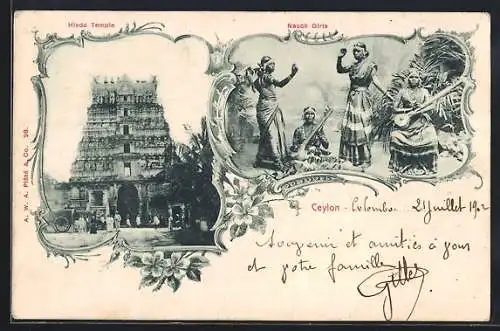 Hindu Temple
Nautch Girls
A. W. A. Plâté & Co. 28.
Ceylon - Colombo. 21 Juillet 1902
Souvenir et amitiés à vous
et votre famille